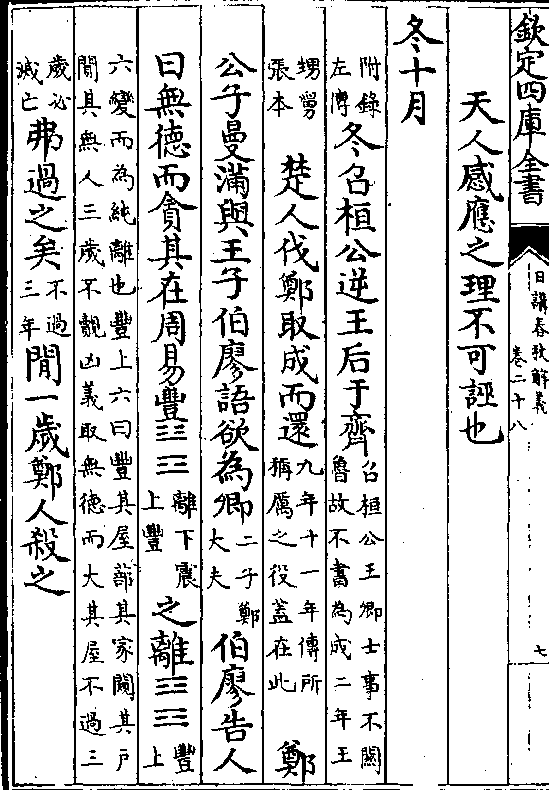 欽定四庫全書
日講春秋解義
卷二十八
七
天人感應之理不可誣也
冬十月
附錄左傳冬召桓公逆王后于齊召桓公王卿士事不關魯故不書為成二年王
甥舅張本楚人伐鄭取成而還九年十一年傳所稱厲之役蓋在此鄭
公子曼滿與王子伯廖語欲為卿二子鄭大夫伯廖告人
曰無德而貪其在周易豐䷶離下震上豐之離䷝豐上
六變而為純離也豐上六曰豐其屋蔀其家闚其戶闃其無人三歲不覿凶義取無德而大其屋不過三
歲必滅亡弗過之矣不過三年間一歲鄭人殺之